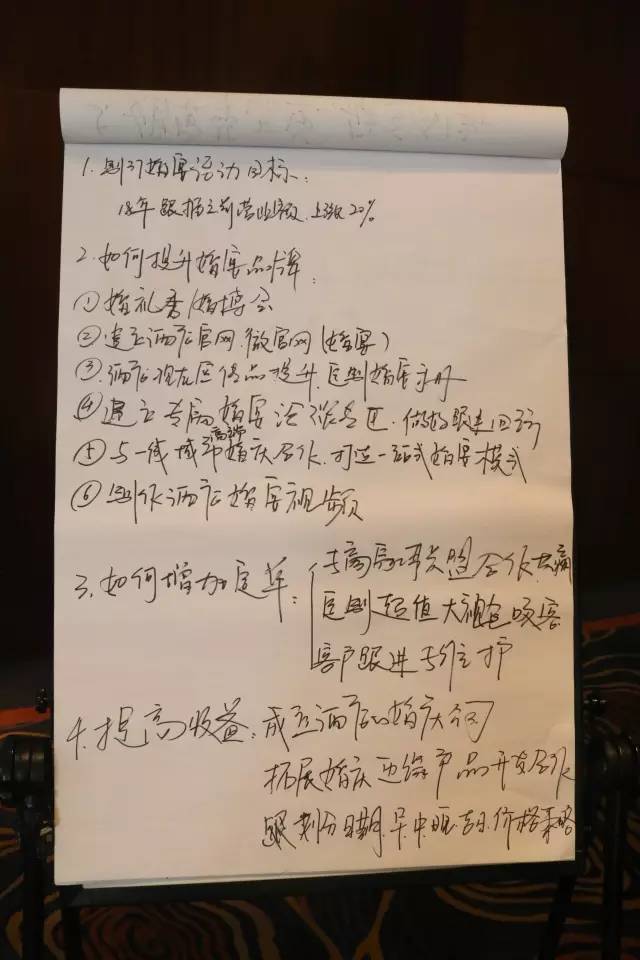 1. 制订婚宴活动目标:
18年 跟据之前营业额, 上涨20%
2. 如何提升婚宴品牌:
① 婚礼秀/婚博会
② 建立酒店官网.微官网(婚宴)
③ 酒店现在区传品提升.定制婚宴手册
④ 建立专属婚宴洽谈区.做好跟进回访
⑤ 与一线城市高端婚庆合作.打造一站式婚宴模式
⑥ 制作酒店婚宴视频
3. 如何增加定单:
与商家联盟合作
定制超值大礼包
客户跟进与维护
4. 提高收益: 成立酒店的婚庆公司
拓展婚庆边缘产品开发合作
划分日期.早.中.晚.吉日.价格策略